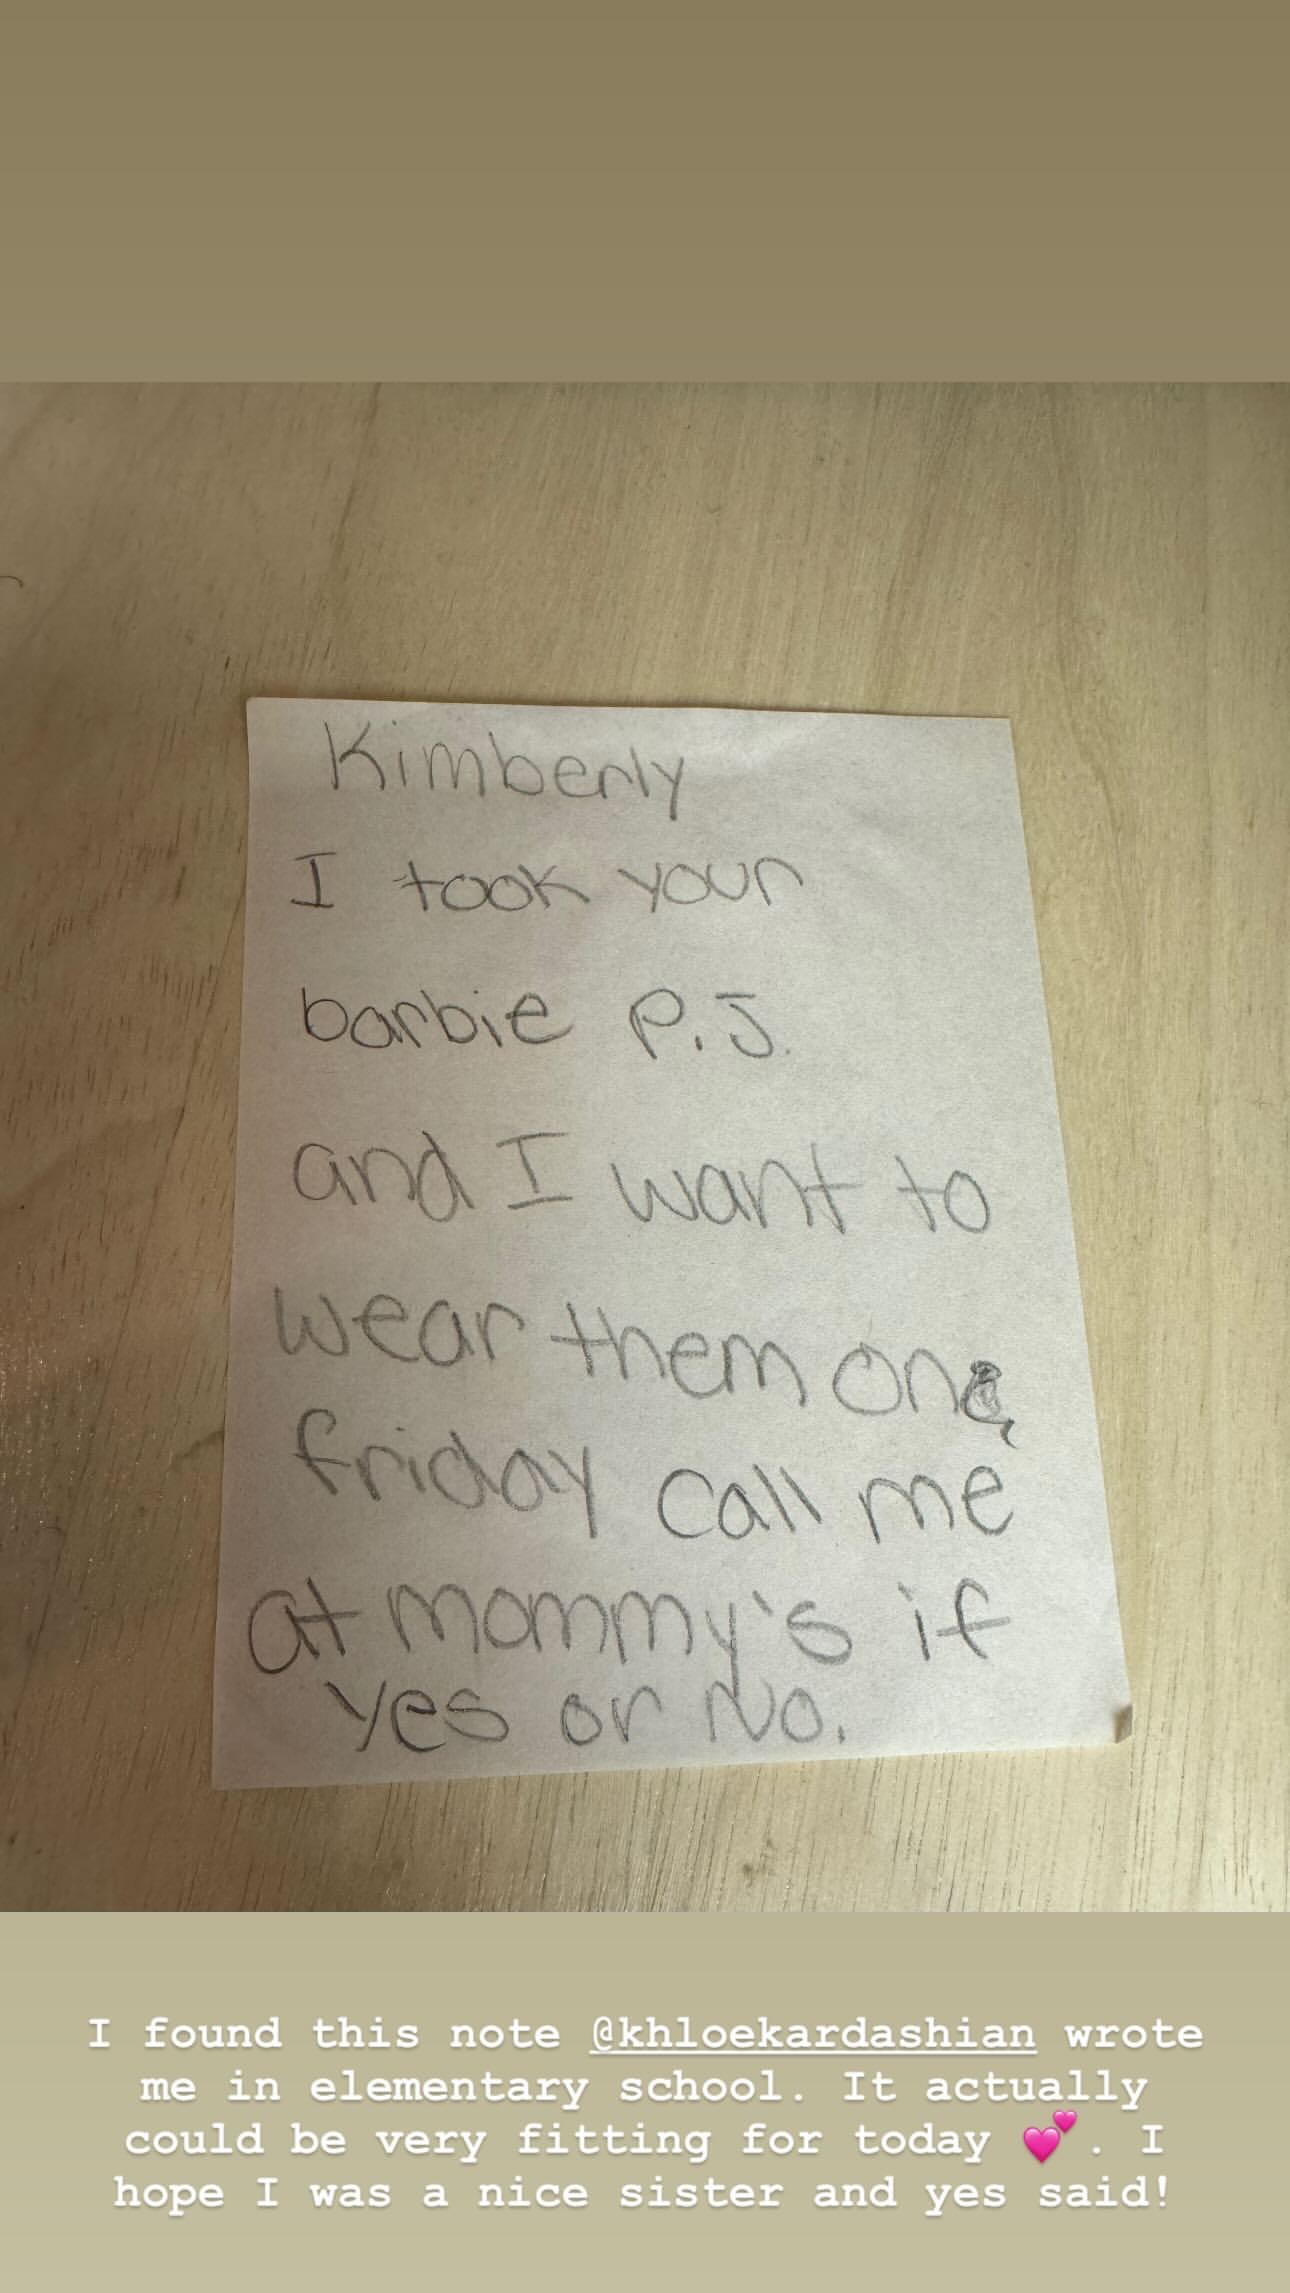 Kimberly
I took your
barbie P.J.
and I want to
wear them on
friday call me
at mommy's if
yes or No.
I found this note @khloekardashian wrote
me in elementary school. It actually
could be very fitting for today 💕. I
hope I was a nice sister and yes said!